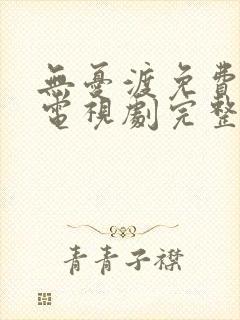 無憂渡免費
電視劇完整
青青子襟